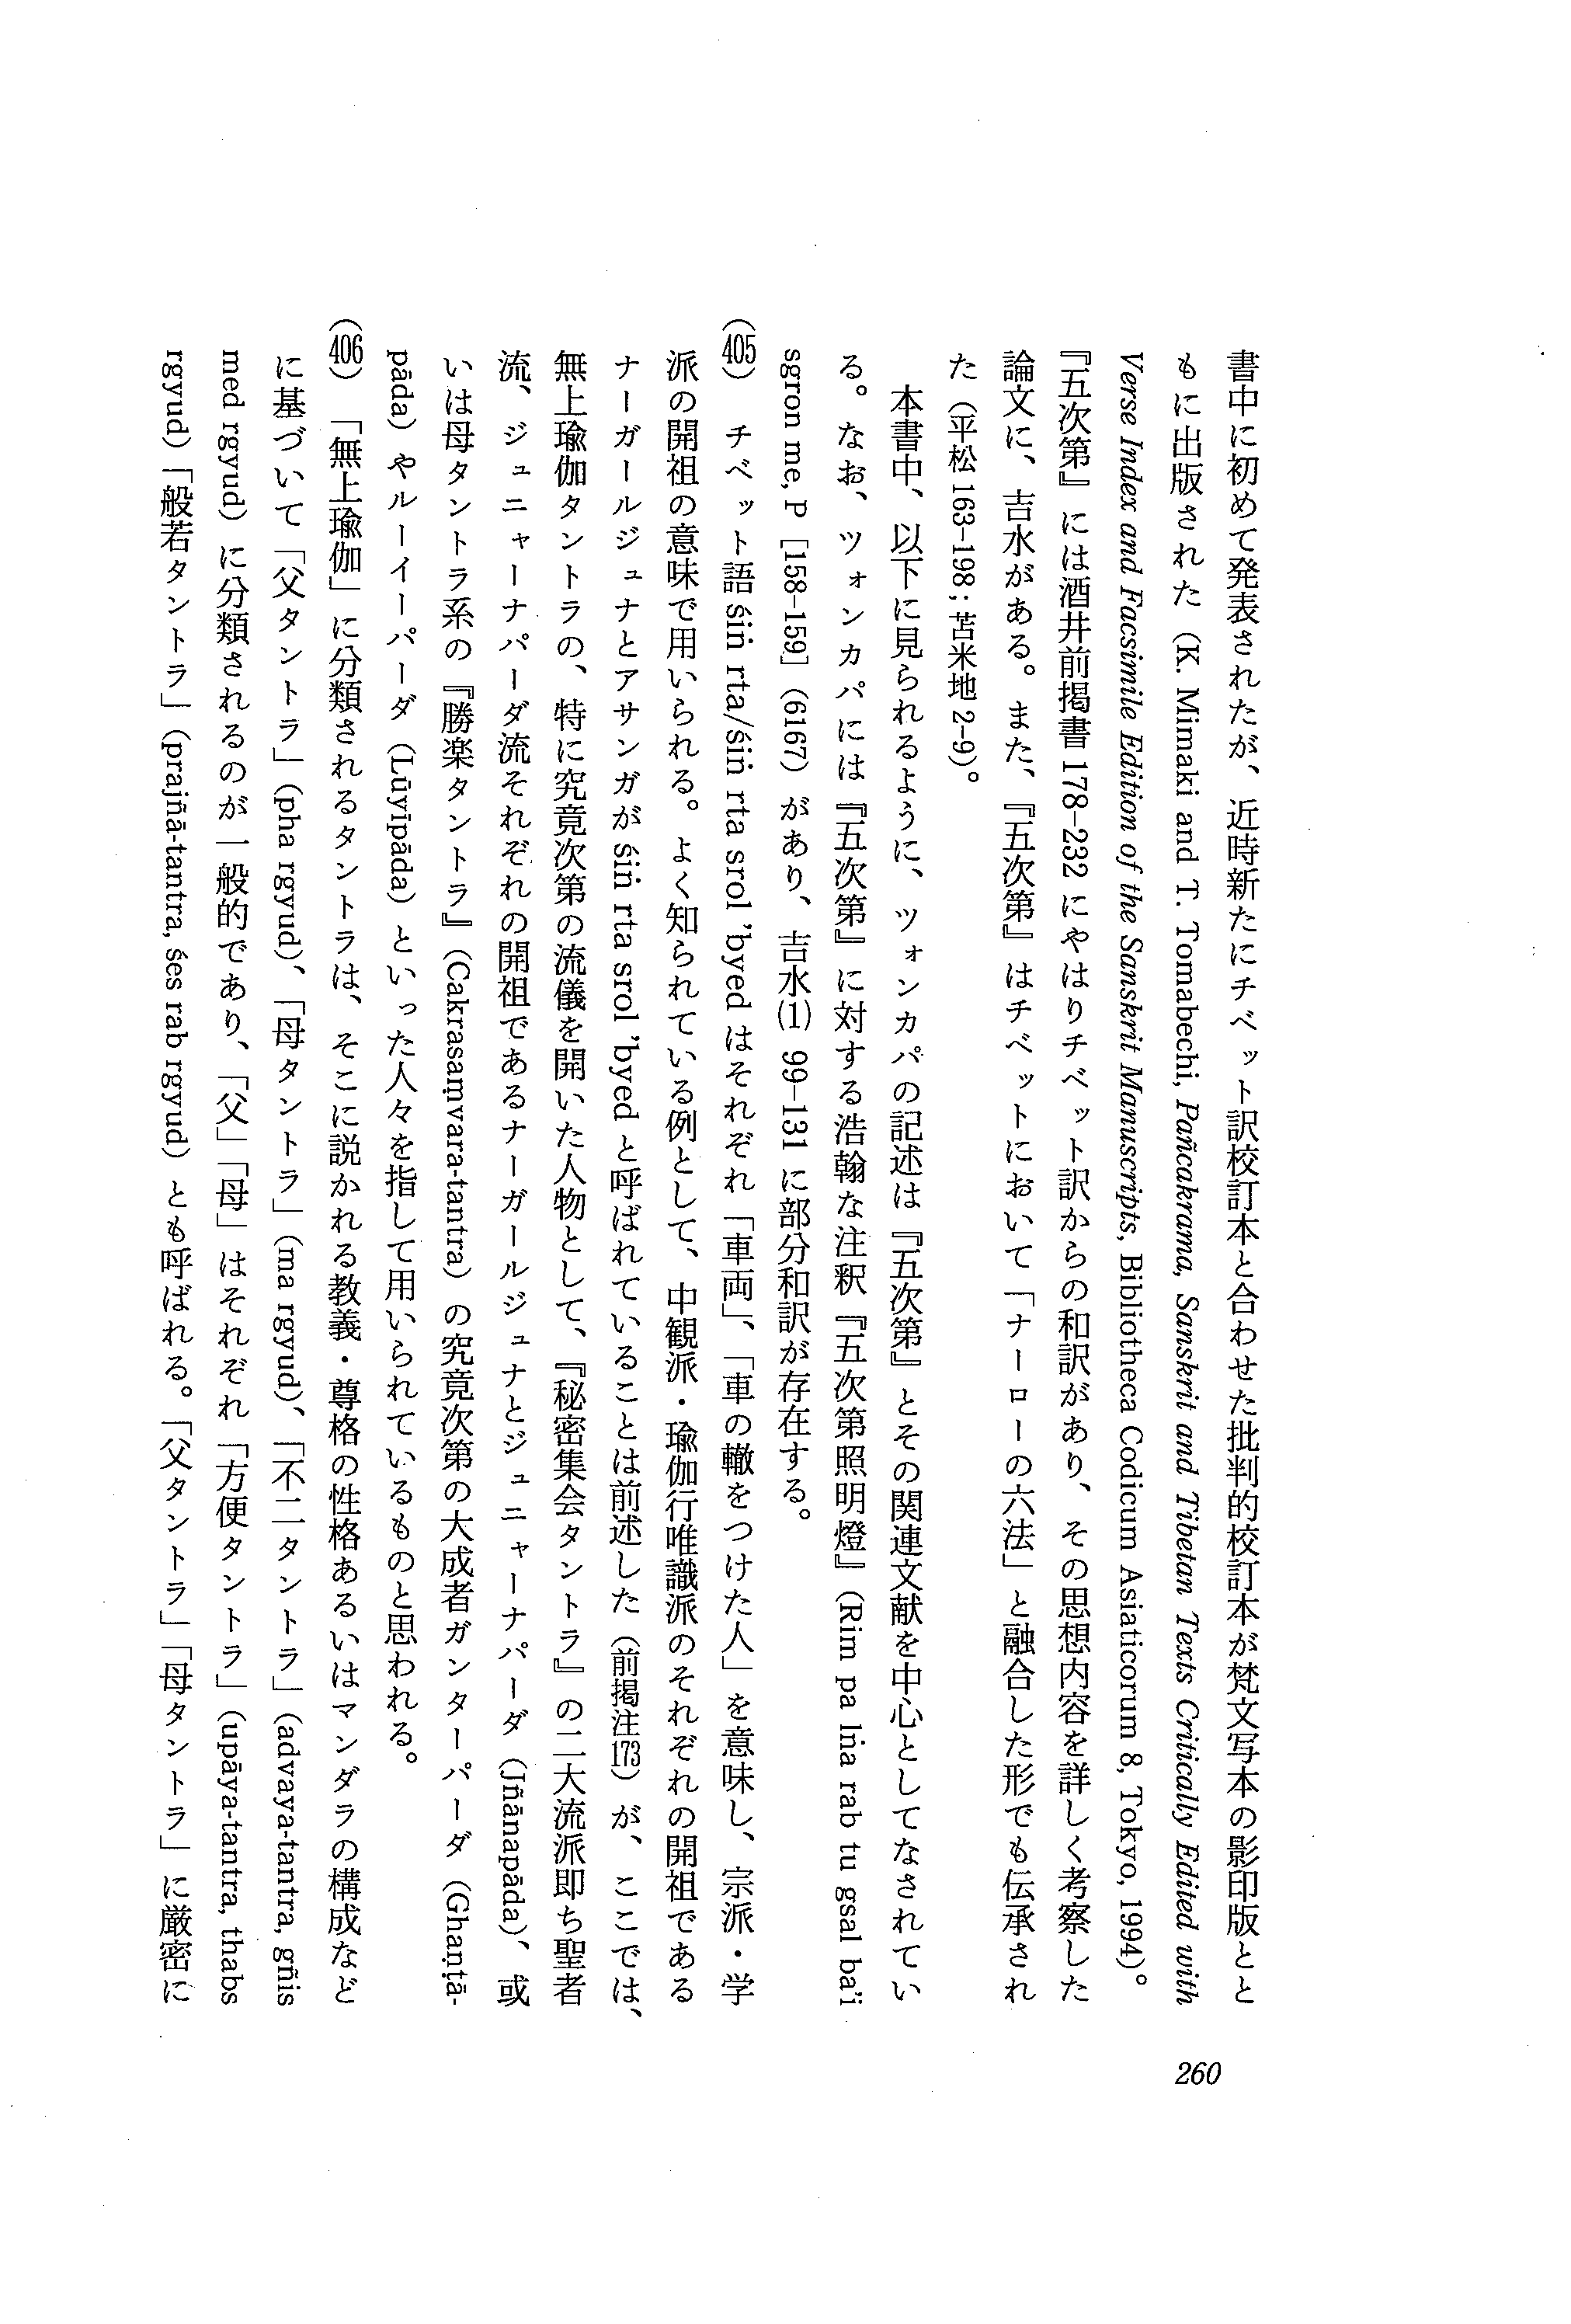 書中に初めて発表されたが、近時新たにチベット訳校訂本と合わせた批判的校訂本が梵文写本の影印版とと
もに出版された（K. Mimaki and T. Tomabechi, Pañcakrama, Sanskrit and Tibetan Texts Critically Edited with
Verse Index and Facsimile Edition of the Sanskrit Manuscripts, Bibliotheca Codicum Asiaticorum 8, Tokyo, 1994）。
『五次第』には酒井前掲書178–232にやはりチベット訳からの和訳があり、その思想内容を詳しく考察した
論文に、吉水がある。また、『五次第』はチベットにおいて「ナーローの六法」と融合した形でも伝承され
た（平松163–198; 苫米地2–9）。
本書中、以下に見られるように、ツォンカパの記述は『五次第』とその関連文献を中心としてなされてい
る。なお、ツォンカパには『五次第』に対する浩翰な注釈『五次第照明燈』（Rim pa lṅa rab tu gsal ba'i
sgron me, P［158–159］（6167）があり、吉水(1) 99–131に部分和訳が存在する。
（405）　チベット語śiṅ rta/śiṅ rta srol 'byedはそれぞれ「車両」、「車の轍をつけた人」を意味し、宗派・学
派の開祖の意味で用いられる。よく知られている例として、中観派・瑜伽行唯識派のそれぞれの開祖である
ナーガールジュナとアサンガがśiṅ rta srol 'byedと呼ばれていることは前述した（前掲注173）が、ここでは、
無上瑜伽タントラの、特に究竟次第の流儀を開いた人物として、『秘密集会タントラ』の二大流派即ち聖者
流、ジュニャーナパーダ流それぞれの開祖であるナーガールジュナとジュニャーナパーダ（Jñānapāda）、或
いは母タントラ系の『勝楽タントラ』（Cakrasaṃvara-tantra）の究竟次第の大成者ガンターパーダ（Ghaṇṭā-
pāda）やルーイーパーダ（Lūyīpāda）といった人々を指して用いられているものと思われる。
（406）　「無上瑜伽」に分類されるタントラは、そこに説かれる教義・尊格の性格あるいはマンダラの構成など
に基づいて「父タントラ」（pha rgyud）、「母タントラ」（ma rgyud）、「不二タントラ」（advaya-tantra, gñis
med rgyud）に分類されるのが一般的であり、「父」「母」はそれぞれ「方便タントラ」（upāya-tantra, thabs
rgyud）「般若タントラ」（prajñā-tantra, śes rab rgyud）とも呼ばれる。「父タントラ」「母タントラ」に厳密に
260